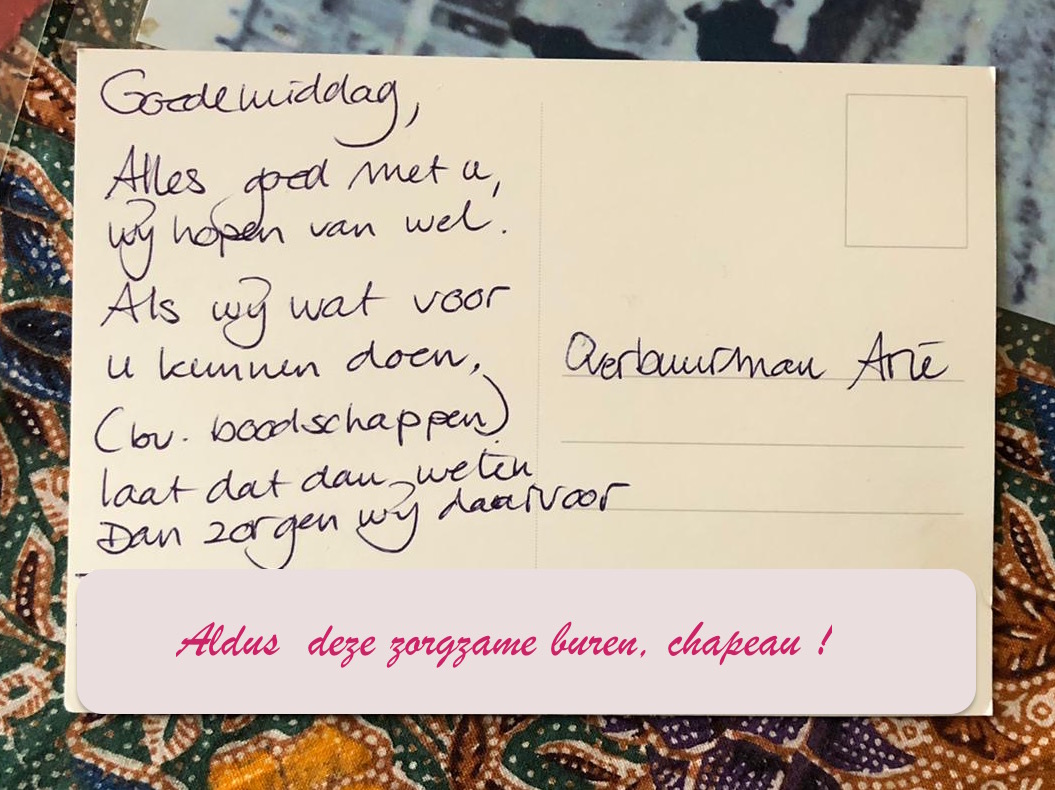 Goedemiddag,
Alles goed met u,
wij hopen van wel.
Als wij wat voor
u kunnen doen,
(bv. boodschappen)
laat dat dan weten
Dan zorgen wij daarvoor
Overbuurman Arie
Aldus deze zorgzame buren, chapeau !